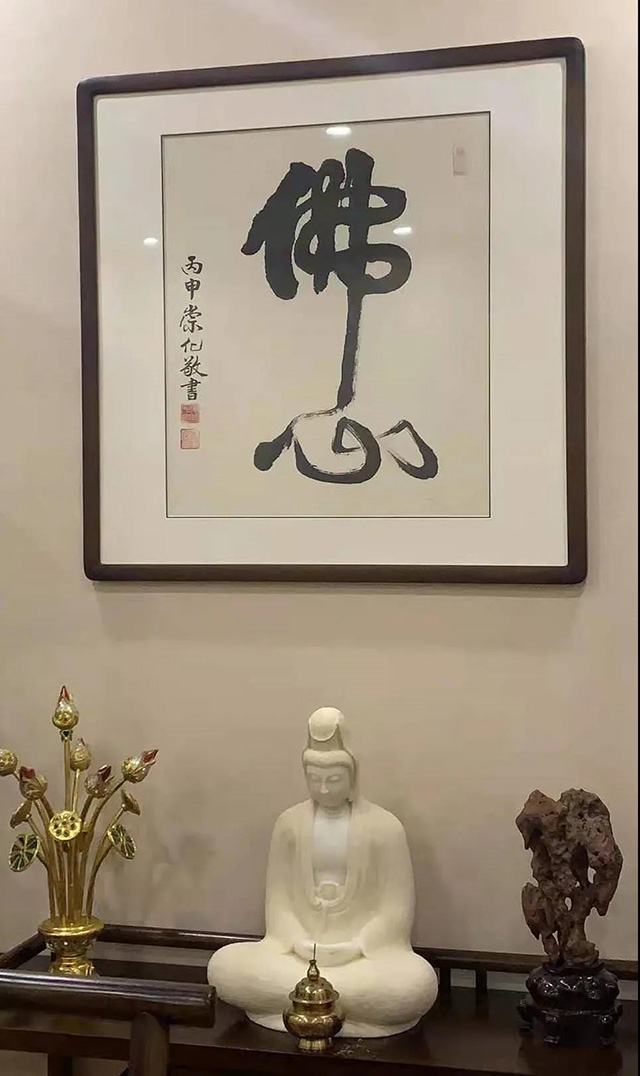 佛心
丙申崇化敬書